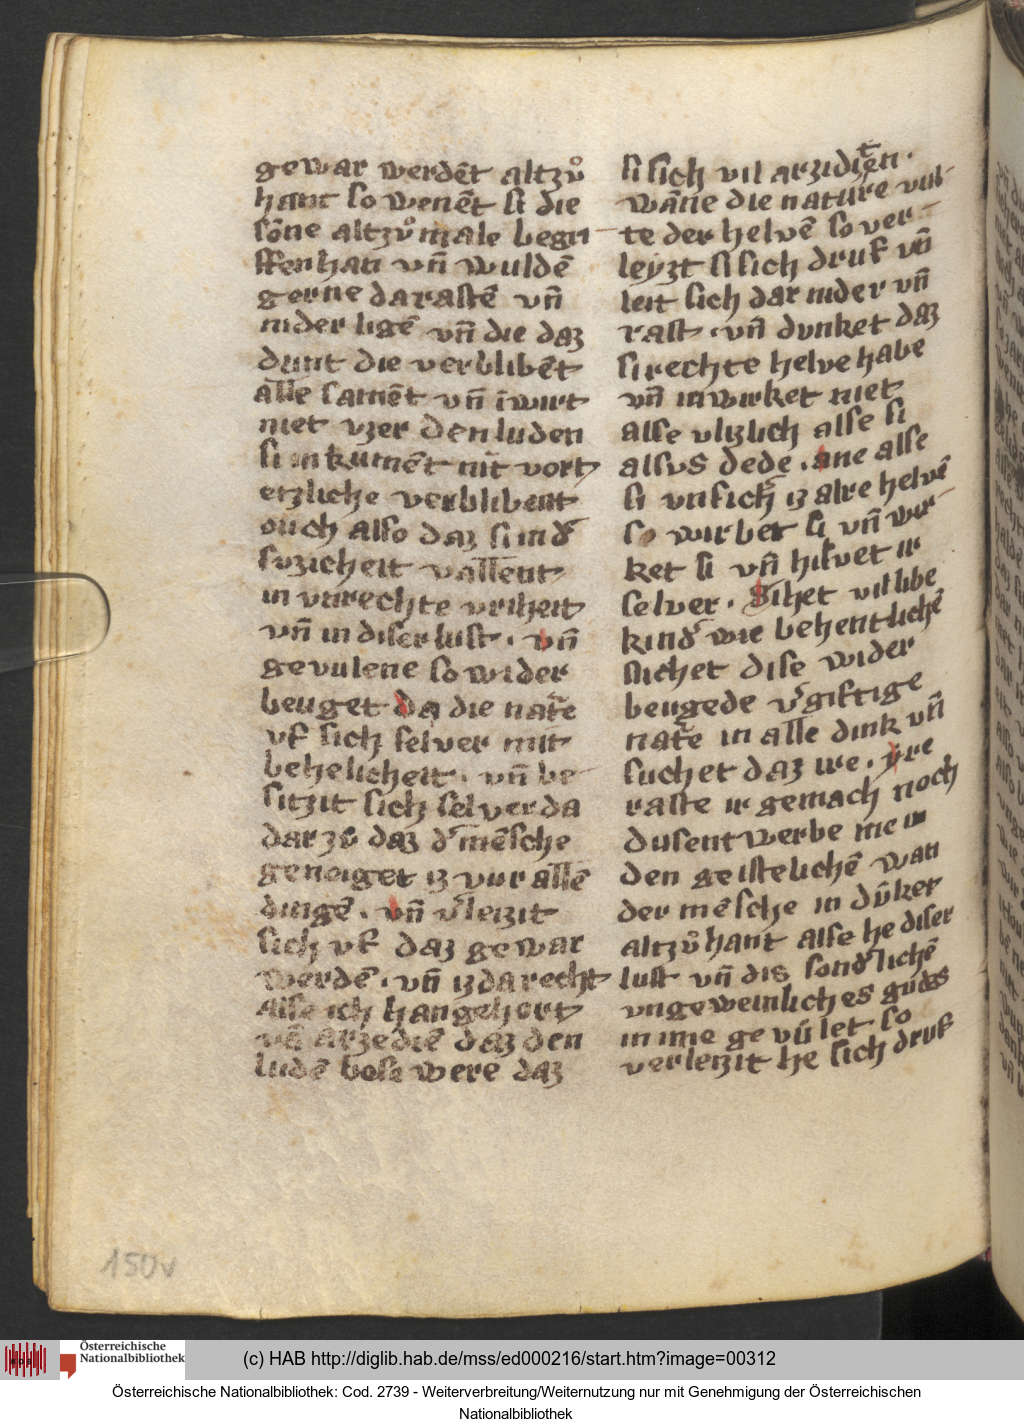 gewar werdēt altzuͦ
hant so wenēt si die
sōne altzuͦmale begri
ffen han vn̄ wuldē
gerne da rastē vn̄
nider ligē vn̄ die daz
dunt die verblibēt
alle samēt vn̄ īwirt
niet vzer den luden
si inkumēt nīt vort
etzliche verblibent
ouch also daz si in d̓
suzicheit vallent
in vnrechte vriheit
vn̄ in diser lust · vn̄
gevulene so wider
beuget da die nat̓e
vf sich selver mit
behelicheit · vn̄ be
sitzit sich selver da
dar zuͦ daz d̓ mēsche
geneiget iz vur allē
dingē · vn̄ v̓leizit
sich vf daz gewar
werdē · vn̄ iz da recht
Alse ich han gehort
vā arzedīe daz den
ludē bose were daz
si sich vil arzidiētē ·
wāne die nature vul
te der helvē so ver
leyzt si sich druf vn̄
leit sich dar nider vn̄
rast · vn̄ dunket daz
si rechte helve habe
vn̄ inwirket niet
alse vlizlich alse si
alsus dede · ane alse
si vnsich̓ iz alre helvē
so wirbet si vn̄ wir
ket si vn̄ hilvet ir
selver · Sihet vil libe
kind̓ wie behentlichē
suchet dise wider
beugede v̓giftige
nat̓e in alle dink vn̄
suchet daz ire · yre
raste ir gemach noch
dusentwerbe me in
den geistelichē wan
der mēsche in dūket
altzuͦhant alse he diser
lust vn̄ dis sond̓lichē
vngeweinliches gūds
inme gevūlet so
verleizit he sich druf
150v
Österreichische
Nationalbibliothek
(c) HAB http://diglib.hab.de/mss/ed000216/start.htm?image=00312
Österreichische Nationalbibliothek: Cod. 2739 - Weiterverbreitung/Weiternutzung nur mit Genehmigung der Österreichischen
Nationalbibliothek